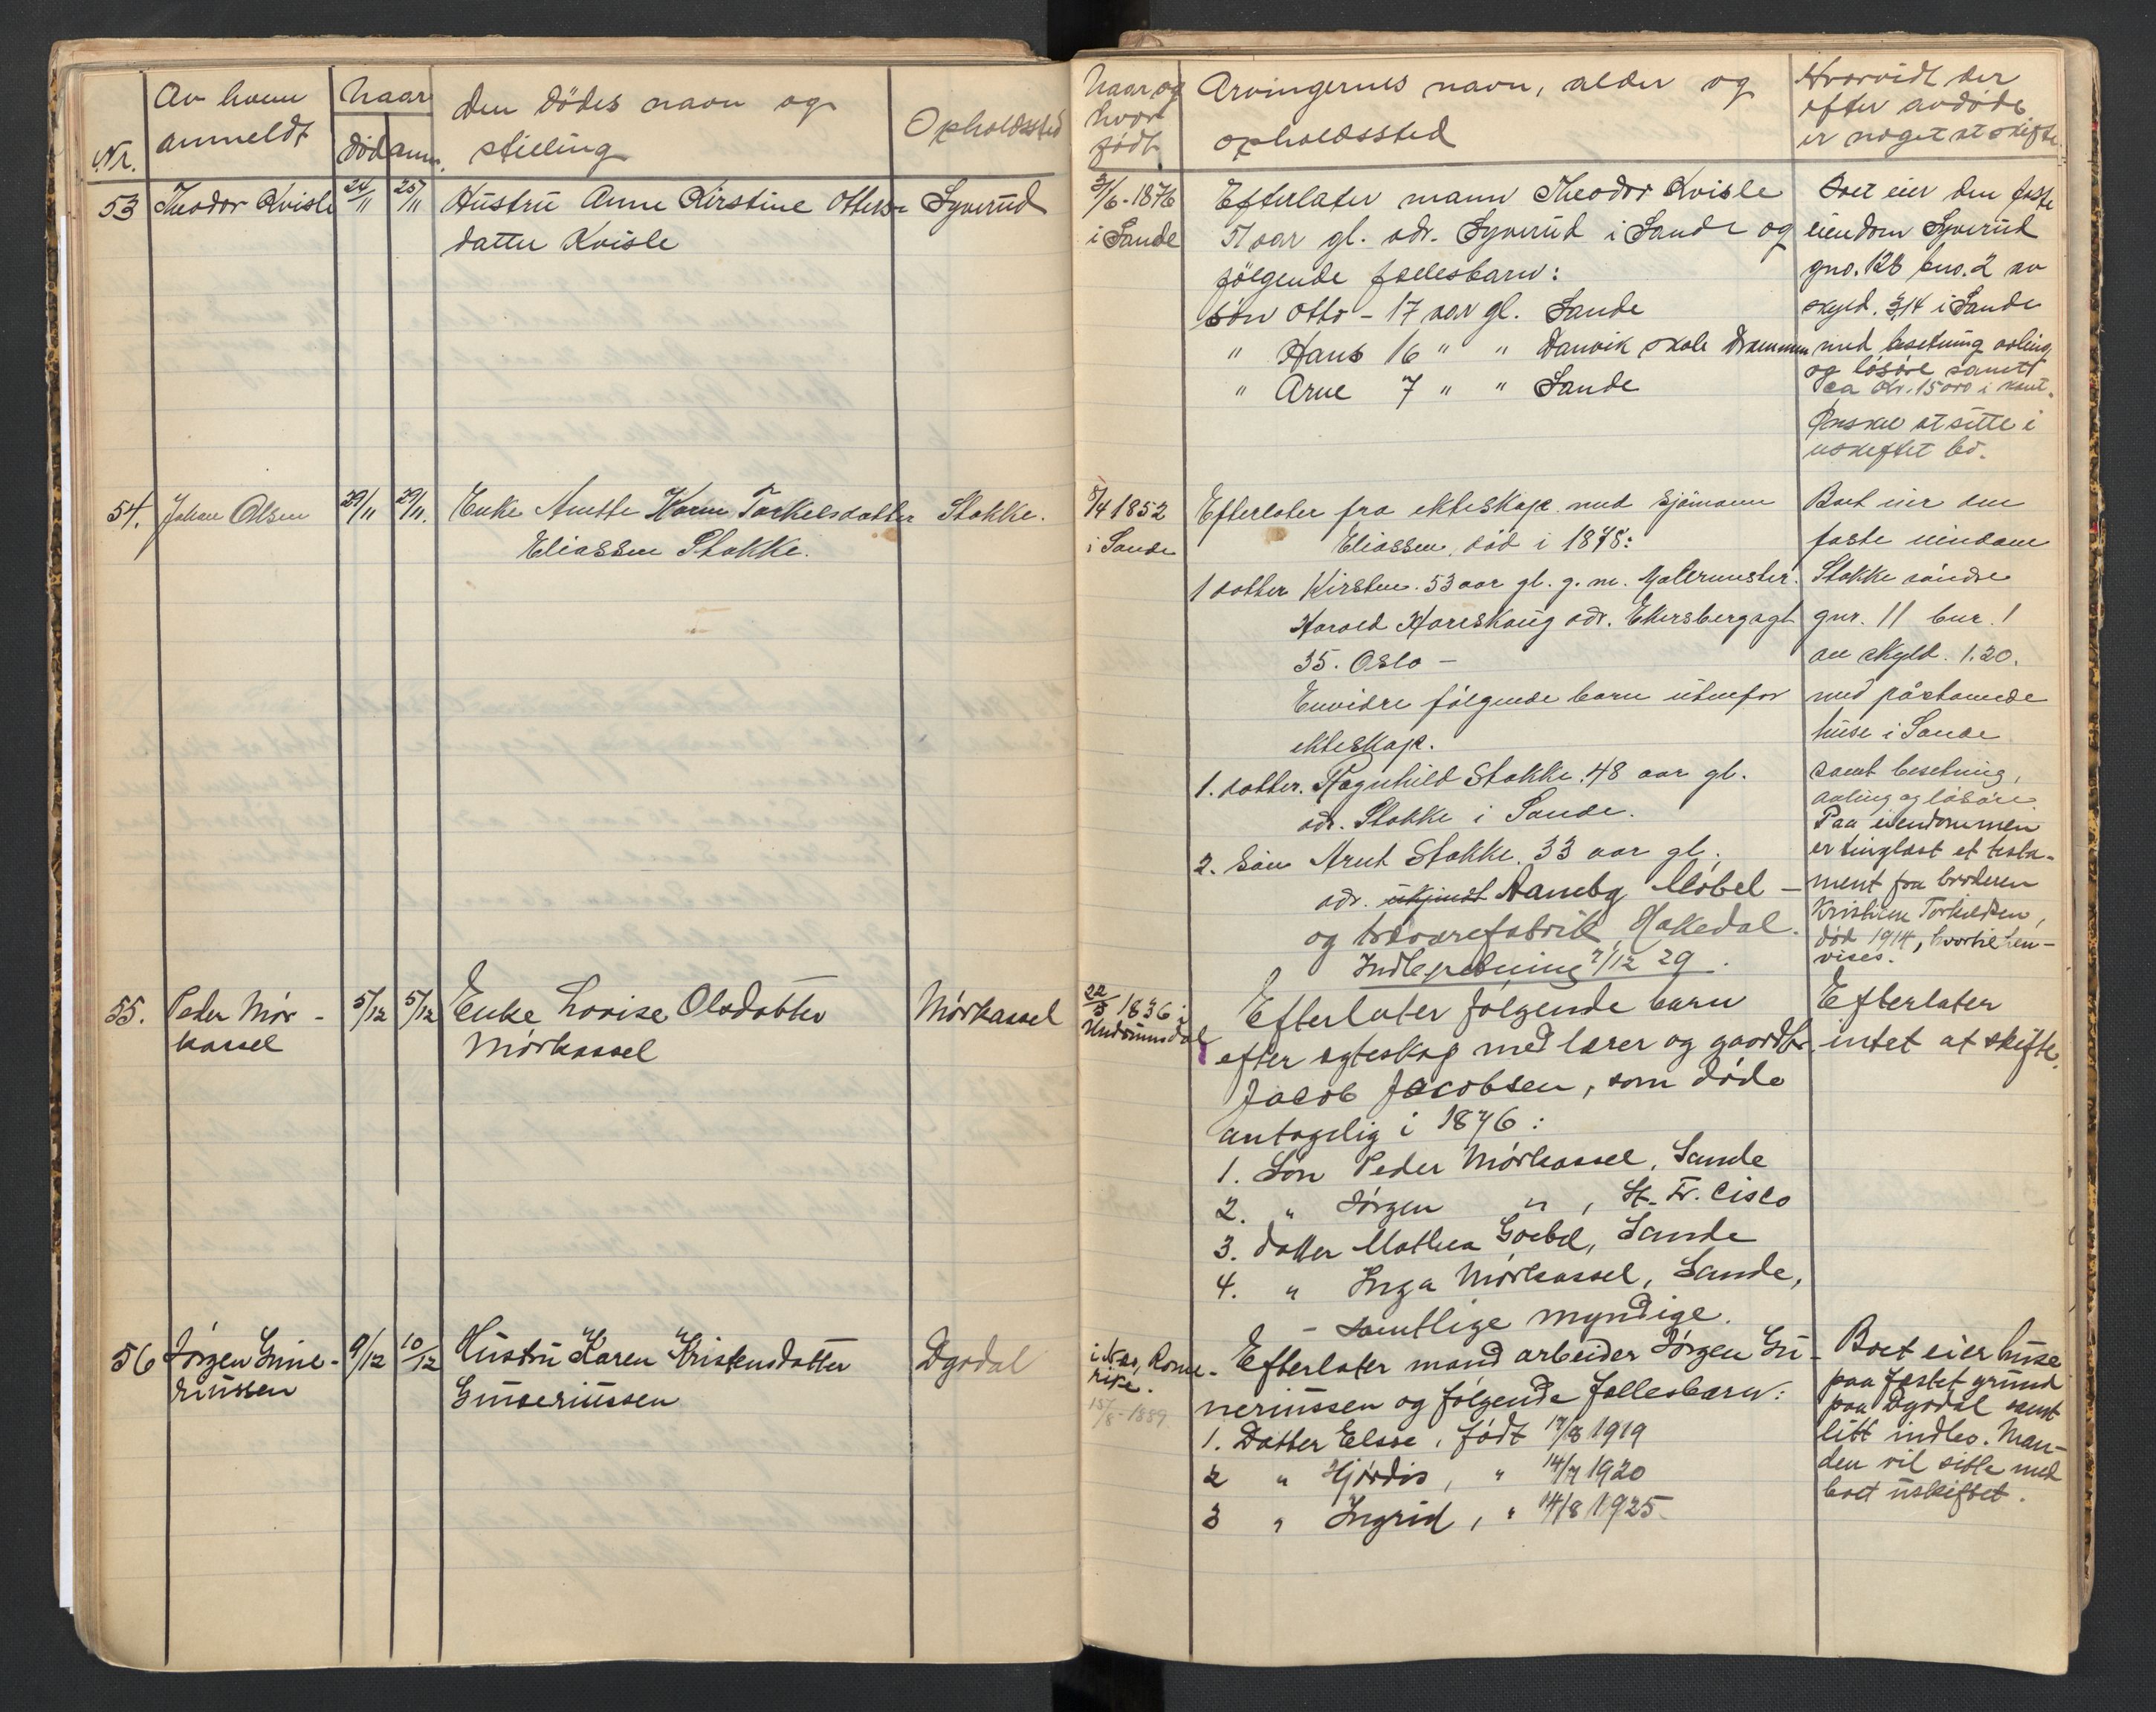 Nr.
Av hvem anmeldt
Naar
død anm.
Den dödes navn og stilling
Opholdssted
Naar og hvor født
Arvingernes navn, alder og opholdssted
Hvorvidt der efter avdøde er noget at skifte.
53 Theodor Kvisle 24/11 25/11 Hustru Anne Kirstine Otters-
datter Kvisle
Syverud
3/6-1876
i Sande
Efterlater mann Theodor Kvisle
51 aar gl. adr. Syverud i Sande og
følgende fællesbarn:
Søn Otto - 17 aar gl. Sande
" Hans 16 " " Danvik skole Drammen
" Arne 7 " " Sande
Boet eier den faste
eiendom Syverud
gno. 128 bno. 2 av
skyld. 3,14 i Sande
med besetning avling
og løsøre samt
ca kr. 15000 i kont.
Ønsker at sitte i
uskiftet bo.
54. Johan Olsen 29/11 29/11. Enke Anette Karine Torkelsdatter
Eliassen Stokke.
Stokke.
5/4 1852
i Sande
Efterlater fra ekteskap med sjömann
Eliassen, död i 1878:
1 datter Kirsten. 53 aar gl. g. m. Malermester.
Harald Hareskaug adr. Ekersbergsgt
35. Oslo -
Envidre følgende barn utenfor
ekteskap.
1. datter. Ragnhild Stokke. 48 aar gl.
adr. Stokke i Sande.
2. Søn Arnt Stokke. 33 aar gl.
adr. ukjendt Aaneby Møbel-
og trævarefabrik, Hakedal.
Indberetning 7/12 29.
Boet eier den
faste eiendom
Stokke søndre
gnr. 11 bnr. 1
av skyld. 1.20.
med påstaaende
huse i Sande
samt besetning,
avling og løsøre.
Paa eiendommen
er tinglæst et testa-
ment fra broderen
Kristian Torkildsen,
död 1914, hvortil hen-
vises.
55. Peder Mør-
kassel
5/12 5/12 Enke Lovise Olsdatter
Mørkassel
Mørkassel
22/3 1836 i
Undrumsdal
Efterlater følgende barn
efter egteskap med lærer og gaardbr.
Jacob Jacobsen, som døde
antagelig i 1876:
1. Søn Peder Mørkassel, Sande
2. " Jørgen " , St. Fr. Cisco
3. datter Mathea Goebel, Sande
4. " Inga Mørkassel, Sande,
- samtlige myndige.
Efterlater
intet at skifte.
56 Jørgen Gune-
riussen
9/12 10/12 Hustru Karen Kristensdatter
Guneriussen
Dypdal
i Nes, Rome-
rike.
15/8-1889.
Efterlater mand arbeider Jørgen Gu-
neriussen og følgende fællesbarn:
1. Datter Elsse, født 17/8 1919
2 " Hjørdis, " 14/7 1920
3 " Ingrid, " 14/8 1925
Boet eier huse
paa fæstet grund
paa Dypdal samt
litt indbo. Man-
den vil sitte med
boet uskiftet.